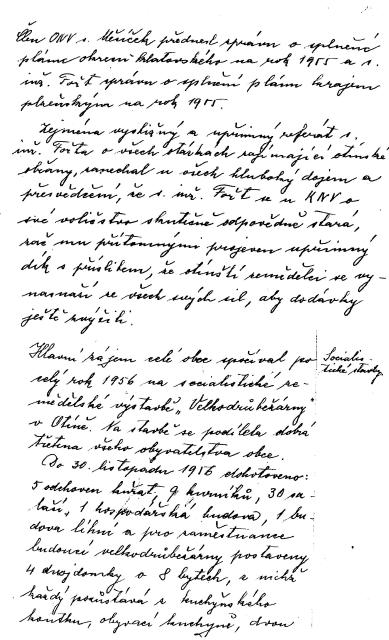 Člen ONV s. Měříček přednesl zprávu o splnění
plánu okresem klatovského na rok 1955 a s.
inž. Fořt zprávu o splnění plánu krajem
plzeňským na rok 1955.
Zejména výstižný a upřímný referát s.
inž. Fořta o všech otázkách zajímající otínské
občany, zanechal u všech hluboký dojem a
přesvědčení, že s. inž. Fořt se u KNV o
své voličstvo skutečně odpovědně stará,
zač mu přítomnými projeven upřímný
dík s příslibem, že otínští zemědělci se vy-
nasnaží ze všech svých sil, aby dodávky
ještě zvýšili.
Hlavní zájem celé obce spočíval po
celý rok 1956 na socialistické ze-
mědělské výstavbě „Velkodrůbežárny"
v Otíně. Na stavbě se podílela dobrá
třetina všeho obyvatelstva obce.
Do 30. listopadu 1956 dohotoveno:
5 odchoven kuřat, 9 kurníků, 30 sa-
laší, 1 hospodářská budova, 1 bu-
dova líhní a pro zaměstnance
budoucí velkodrůbežárny postaveny
4 dvojdomky o 8 bytech, z nichž
každý pozůstává z kuchyňského
koutku, obývací kuchyně, dvou
Socialis-
tické stavby.